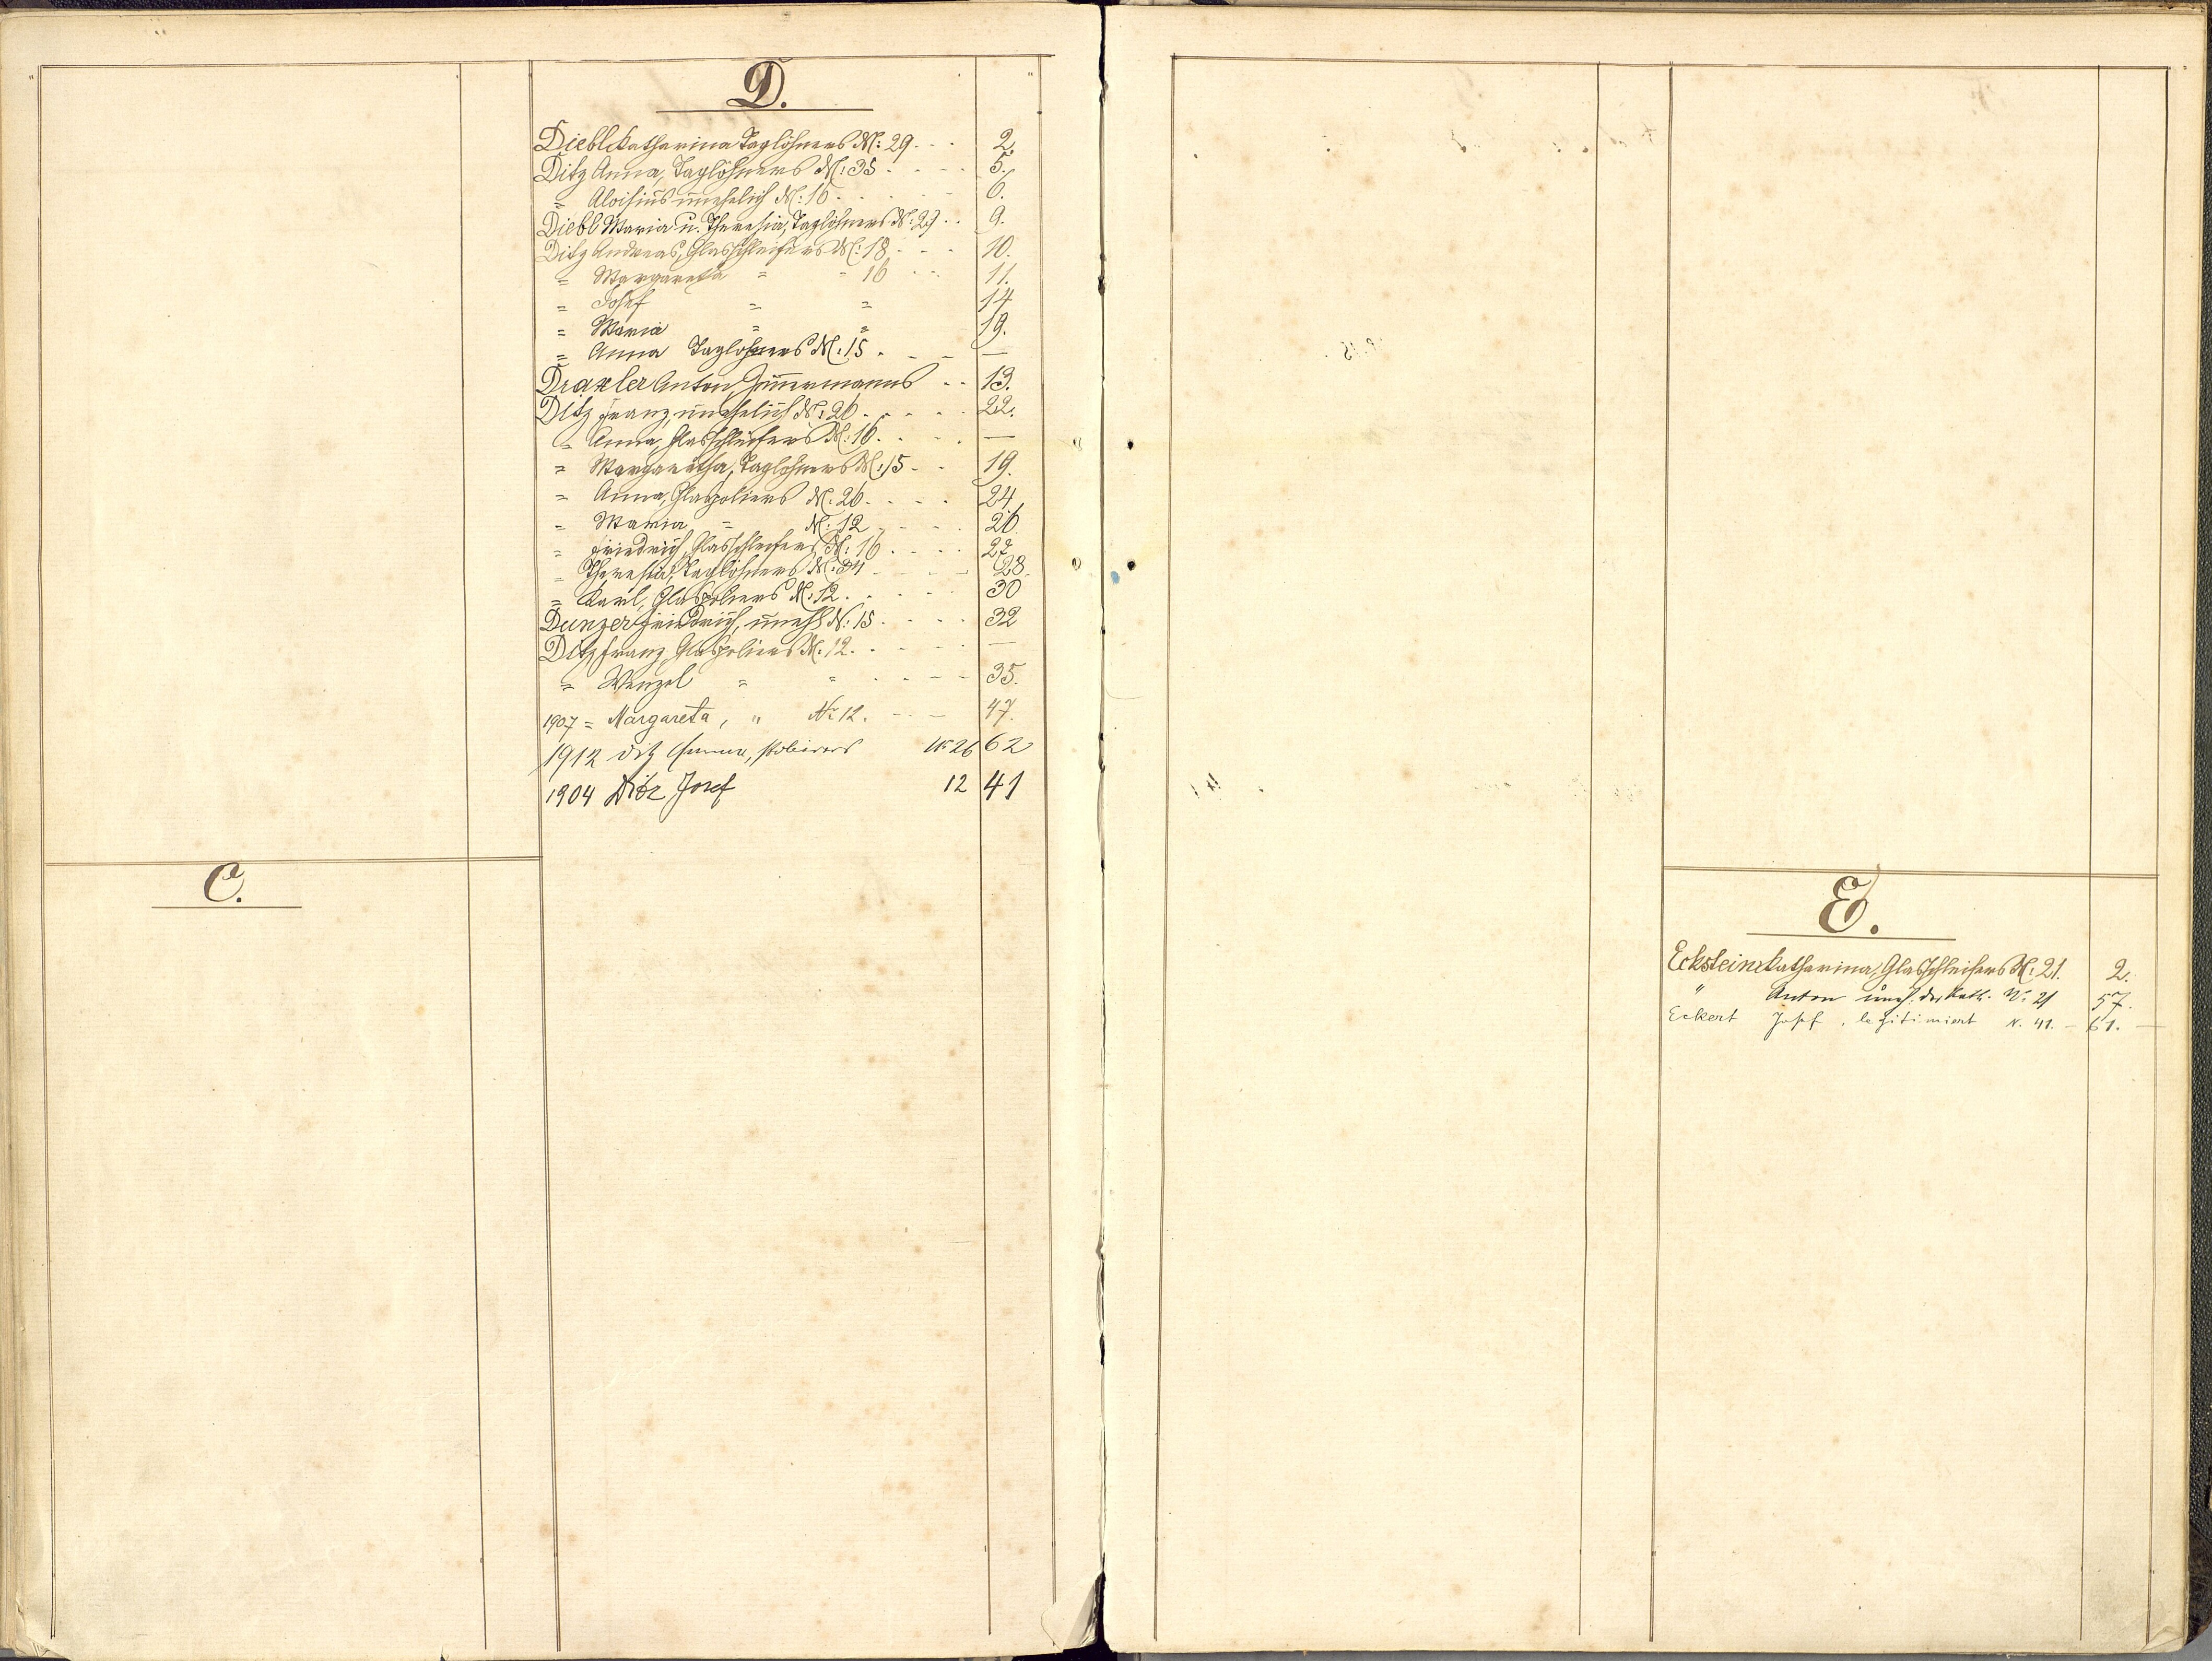 D.
Diebl Katharina Taglöhners N: 29. - - 2.
Ditz Anna, Taglöhners N: 35. - - - 5.
= Aloisius unehelich N: 16. 6.
Diebl Maria u. Theresia, Taglöhners N: 29. . 9.
Ditz Andreas, Glasschleifers N: 18. - - 10.
= Margaretha = = 16 - - 11.
= Josef = = 14
= Maria = = 19.
= Anna Taglöhners N: 15. - - - —
Draxler Anton Zimmermanns - - 13.
Ditz Franz, unehelich N: 26. - - - 22.
= Anna, Glasschleifers N: 16. - - - —
= Margaretha, Taglöhners N: 15 - - 19.
= Anna, Glaspoliers N: 26. - - - 24
= Maria = N: 12 - - - 26.
= Friedrich, Glasschleifers N: 16. - - - 27
= Theresia, Taglöhners N: 34 - - - 28.
= Karl, Glaspoliers N: 12. - - - 30
Dunzer Friedrich, unehl. N: 15. - - - 32
Ditz Franz, Glaspoliers N: 12. - - - —
= Wenzel = = - - - 35.
1907 = Margareta, " No 12. - - 47.
1912 Ditz Polierers No 26 62
1904 Ditz Josef 12 41
C.
E.
Eckstein Katharina, Glasschleifers N: 21. 2.
" Anton uneh. der Kath. No 21 57.
Eckert Josef, legitimiert N. 41. - 61. —